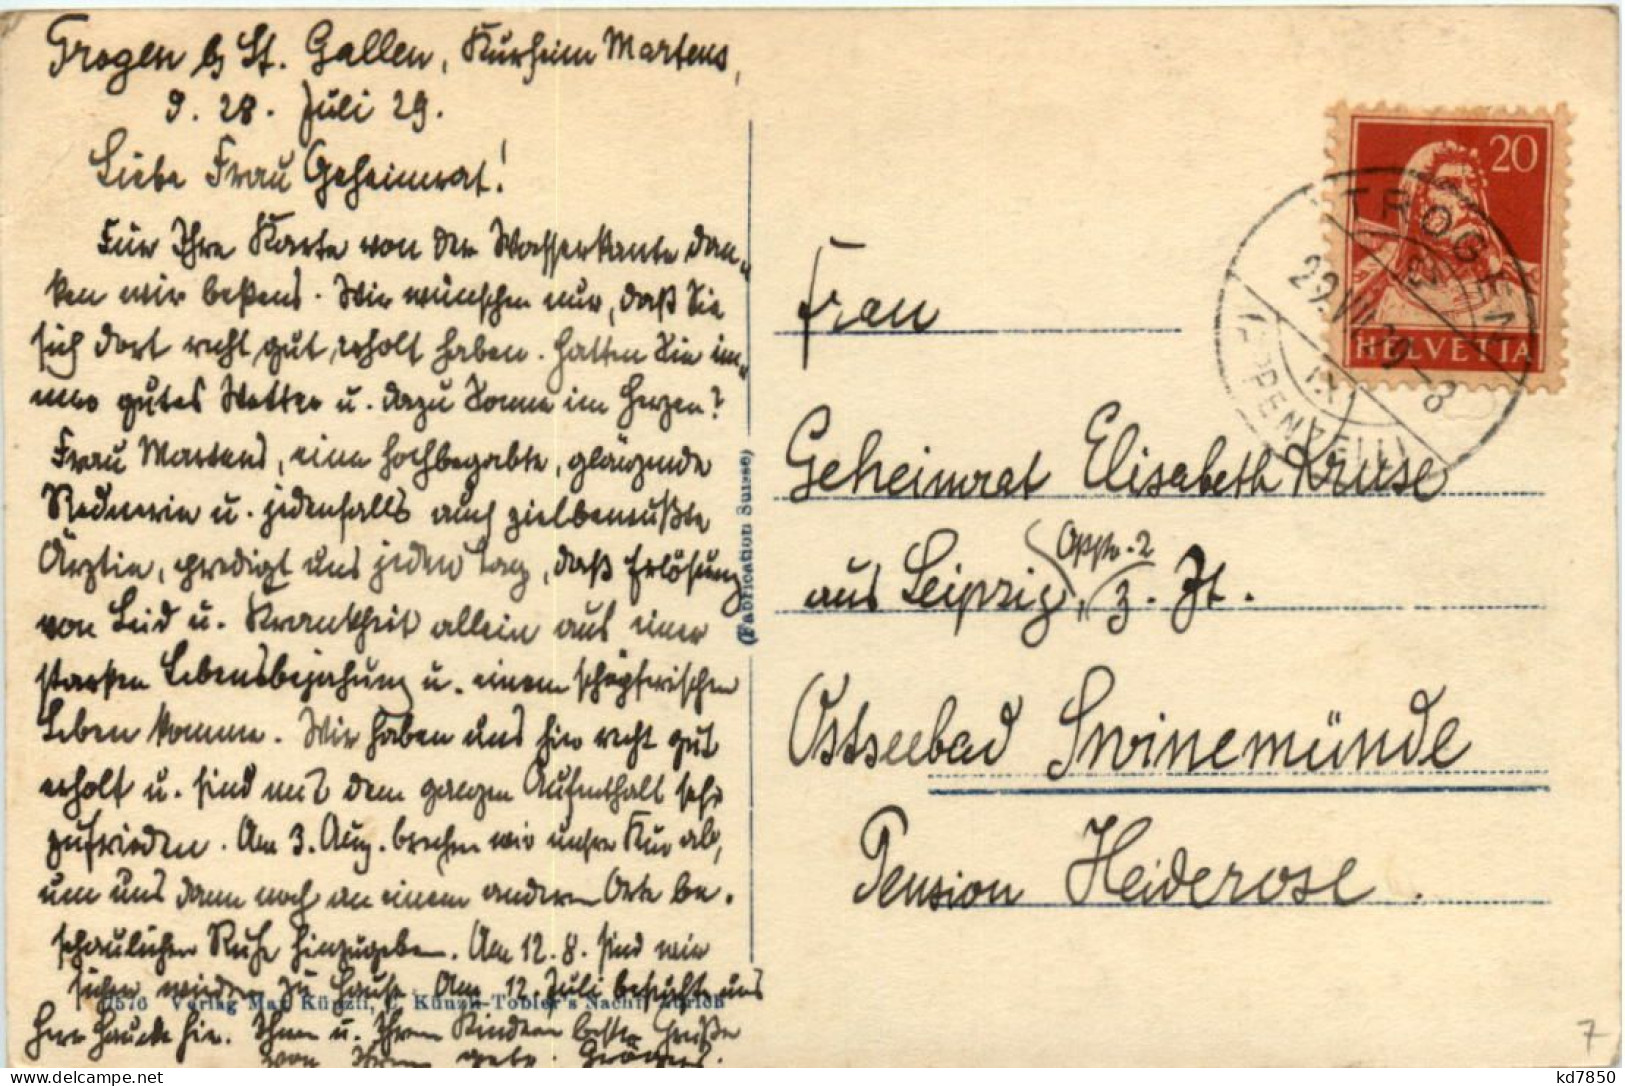 Trogen b St. Gallen, Kurheim Martens,
d. 28. Juli 29.
Liebe Frau Geheimrat!
Für Ihre Karte von der Wasserkante dan-
ken wir bestens. Wir wünschen nur, daß Sie
sich dort recht gut erholt haben. Hatten Sie im-
mer gutes Wetter u. dazu Sonne im Herzen?
Frau Martens, eine hochbegabte, glänzende
Rednerin u. jedenfalls auch zielbewußte
Ärztin, predigt uns jeden Tag, daß Erlösung
von Leid u. Krankheit allein aus einer
starken Lebensbejahung u. einem schöpferischen
Leben komme. Wir haben uns hier recht gut
erholt u. sind mit dem ganzen Aufenthalt sehr
zufrieden. Am 3. Aug. brechen wir unsre Kur ab,
um uns dann noch an einem anderen Orte be-
schaulicher Ruhe hinzugeben. Am 12.8. sind wir
sicher wieder zu Hause. Am 12. Juli besuchte uns
Herr Hauck hier. Ihnen u. Ihren Kindern beste Grüße
von Ihren
9576 Verlag Max Künzli, C. Künzli-Tobler's Nachf. Zürich
(Fabrication Suisse)
20
HELVETIA
TROGEN
29.VII.29-8
IX
(APPENZELL)
Frau
Geheimrat Elisabeth Kruse
aus Leipzig, z. Zt.
Ostseebad Swinemünde
Pension Heiderose.
7
kd7850